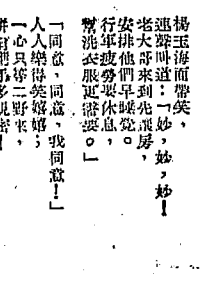 楊玉海面帶笑，
連聲叫道：「妙，妙，妙！
老大哥來到先讓房，
安排他們早睡覺。
行軍疲勞要休息，
幫洗衣服更需要。」
「同意，同意，我同意！」
人人樂得笑嘻嘻；
「一心只等二野來，